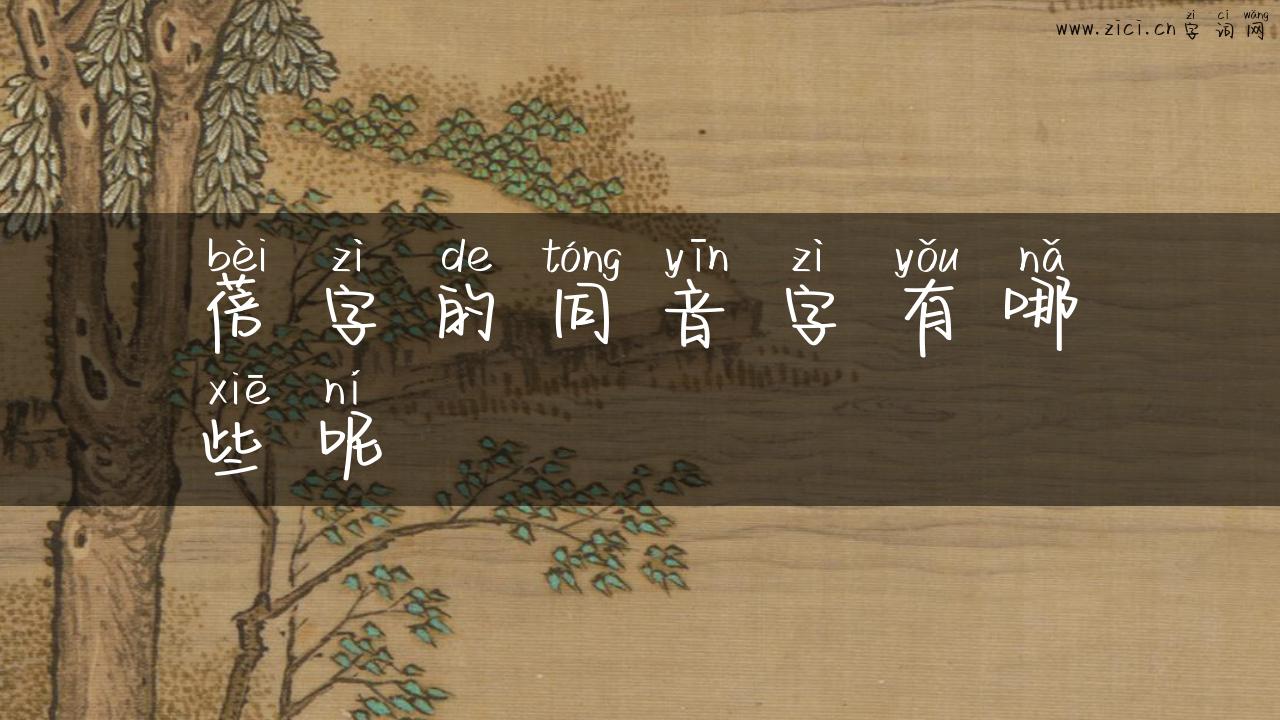 zì cí wǎng
www.zici.cn 字词网
bèi zì de tóng yīn zì yǒu nǎ
蓓字的同音字有哪
xiē ní
些呢